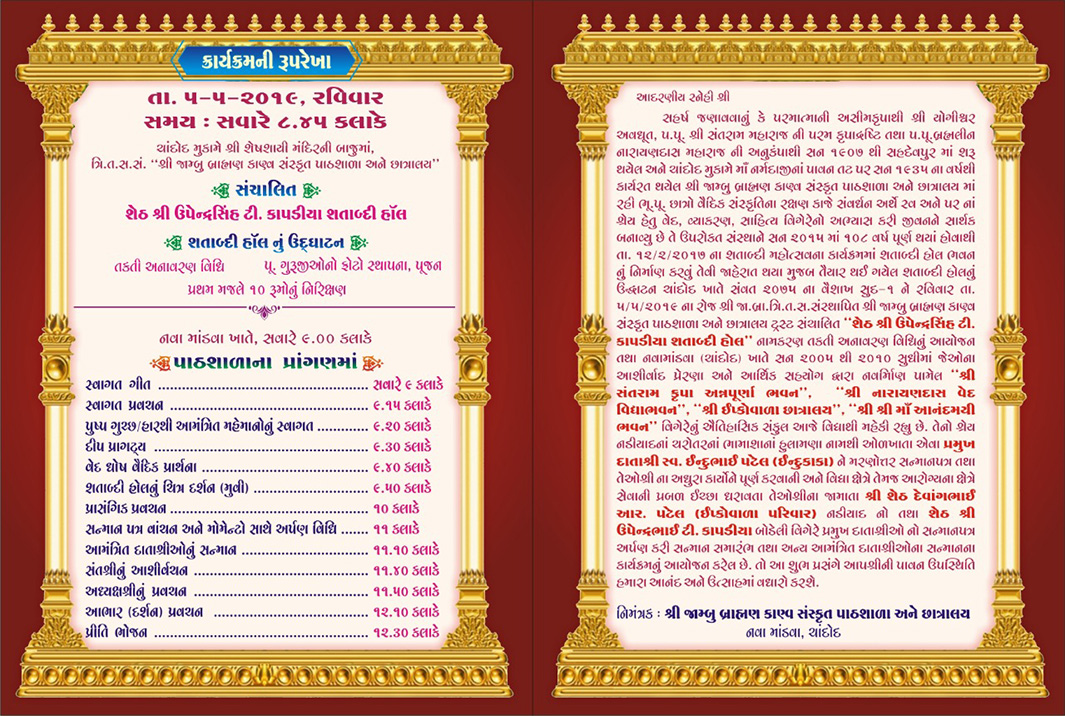 કાર્યક્રમની રૂપરેખા
તા. ૫-૫-૨૦૧૯, રવિવાર
સમય : સવારે ૮.૪૫ કલાકે
ચાંદોદ મુકામે શ્રી શેષશાયી મંદિરની બાજુમાં,
ત્રિ.ત.સ.સં. “શ્રી જામ્બુ બ્રાહ્મણ કાણ્વ સંસ્કૃત પાઠશાળા અને છાત્રાલય”
સંચાલિત
શેઠ શ્રી ઉપેન્દ્રસિંહ ટી. કાપડીયા શતાબ્દી હૉલ
શતાબ્દી હૉલ નું ઉદ્‌ઘાટન
તકતી અનાવરણ વિધિ પૂ. ગુરૂજીઓનો ફોટો સ્થાપના, પૂજન
પ્રથમ મજલે ૧૦ રૂમોનું નિરિક્ષણ
નવા માંડવા ખાતે, સવારે ૯.૦૦ કલાકે
પાઠશાળાના પ્રાંગણમાં
સ્વાગત ગીત ........ સવારે ૯ કલાકે
સ્વાગત પ્રવચન ........ ૯.૧૫ કલાકે
પુષ્પ ગુચ્છ/હારથી આમંત્રિત મહેમાનોનું સ્વાગત ........ ૯.૨૦ કલાકે
દીપ પ્રાગટ્ય ........ ૯.૩૦ કલાકે
વેદ ઘોષ વૈદિક પ્રાર્થના ........ ૯.૪૦ કલાકે
શતાબ્દી હોલનું ચિત્ર દર્શન (મુવી) ........ ૯.૫૦ કલાકે
પ્રાસંગિક પ્રવચન ........ ૧૦ કલાકે
સન્માન પત્ર વાંચન અને મોમેન્ટો સાથે અર્પણ વિધિ ....... ૧૧ કલાકે
આમંત્રિત દાતાશ્રીઓનું સન્માન ........ ૧૧.૧૦ કલાકે
સંતશ્રીનું આશીર્વચન ........ ૧૧.૪૦ કલાકે
અધ્યક્ષશ્રીનું પ્રવચન ........ ૧૧.૫૦ કલાકે
આભાર (દર્શન) પ્રવચન ........ ૧૨.૧૦ કલાકે
પ્રીતિ ભોજન ........ ૧૨.૩૦ કલાકે
આદરણીય સ્નેહી શ્રી
સહર્ષ જણાવવાનું કે પરમાત્માની અસીમકૃપાથી શ્રી યોગીશ્વર
અવધૂત, પ.પૂ. શ્રી સંતરામ મહારાજ ની પરમ કૃપાદ્રષ્ટિ તથા પ.પૂ.બ્રહ્મલીન
નારાયણદાસ મહારાજ ની અનુકંપાથી સન ૧૯૦૭ થી સહદેવપુર માં શરૂ
થયેલ અને ચાંદોદ મુકામે માઁ નર્મદાજીનાં પાવન તટ પર સન ૧૯૩૫ ના વર્ષથી
કાર્યરત થયેલ શ્રી જામ્બુ બ્રાહ્મણ કાણ્વ સંસ્કૃત પાઠશાળા અને છાત્રાલય માં
રહી ભૂ.પૂ. છાત્રો વૈદિક સંસ્કૃતિના રક્ષણ કાજે સંવર્ધન અર્થે સ્વ અને પર નાં
શ્રેય હેતુ વેદ, વ્યાકરણ, સાહિત્ય વિગેરેનો અભ્યાસ કરી જીવનને સાર્થક
બનાવ્યુ છે તે ઉપરોક્ત સંસ્થાને સન ૨૦૧૫ માં ૧૦૮ વર્ષ પૂર્ણ થયાં હોવાથી
તા. ૧૨/૨/૨૦૧૭ ના શતાબ્દી મહોત્સવના કાર્યક્રમમાં શતાબ્દી હોલ ભવન
નું નિર્માણ કરવું તેવી જાહેરાત થયા મુજબ તૈયાર થઈ ગયેલ શતાબ્દી હોલનું
ઉદ્ઘાટન ચાંદોદ ખાતે સંવત ૨૦૭૫ ના વૈશાખ સુદ-૧ ને રવિવાર તા.
૫/૫/૨૦૧૯ ના રોજ શ્રી જા.બ્રા.ત્રિ.ત.સ.સંસ્થાપિત શ્રી જામ્બુ બ્રાહ્મણ કાણ્વ
સંસ્કૃત પાઠશાળા અને છાત્રાલય ટ્રસ્ટ સંચાલિત “શેઠ શ્રી ઉપેન્દ્રસિંહ ટી.
કાપડીયા શતાબ્દી હોલ” નામકરણ તકતી અનાવરણ વિધિનું આયોજન
તથા નવામાંડવા (ચાંદોદ) ખાતે સન ૨૦૦૫ થી ૨૦૧૦ સુધીમાં જેઓના
આશીર્વાદ પ્રેરણા અને આર્થિક સહયોગ દ્વારા નવર્નિમાણ પામેલ “શ્રી
સંતરામ કૃપા અન્નપૂર્ણા ભવન”, “શ્રી નારાયણદાસ વેદ
વિદ્યાભવન”, “શ્રી ઈપ્કોવાળા છાત્રાલય”, “શ્રી શ્રી માઁ આનંદમયી
ભવન” વિગેરેનું ઐતિહાસિક સંકુલ આજે વિદ્યાથી મહેકી રહ્યુ છે. તેનો શ્રેય
નડીયાદનાં ચરોતરનાં ભામાશાનાં હુલામણા નામથી ઓળખાતા એવા પ્રમુખ
દાતાશ્રી સ્વ. ઈન્દુભાઈ પટેલ (ઈન્દુકાકા) ને મરણોત્તર સન્માનપત્ર તથા
તેઓશ્રી ના અધુરા કાર્યોને પૂર્ણ કરવાની અને વિદ્યા ક્ષેત્રે તેમજ આરોગ્યના ક્ષેત્રે
સેવાની પ્રબળ ઈચ્છા ધરાવતા તેઓશ્રીના જામાતા શ્રી શેઠ દેવાંગભાઈ
આર. પટેલ (ઈપ્કોવાળા પરિવાર) નડીયાદ નો તથા શેઠ શ્રી
ઉપેન્દ્રભાઈ ટી. કાપડીયા બોડેલી વિગેરે પ્રમુખ દાતાશ્રીઓ નો સન્માનપત્ર
અર્પણ કરી સન્માન સમારંભ તથા અન્ય આમંત્રિત દાતાશ્રીઓના સન્માનના
કાર્યક્રમનું આયોજન કરેલ છે. તો આ શુભ પ્રસંગે આપશ્રીની પાવન ઉપસ્થિતિ
હમારા આનંદ અને ઉત્સાહમાં વધારો કરશે.
નિમંત્રક : શ્રી જામ્બુ બ્રાહ્મણ કાણ્વ સંસ્કૃત પાઠશાળા અને છાત્રાલય
નવા માંડવા, ચાંદોદ